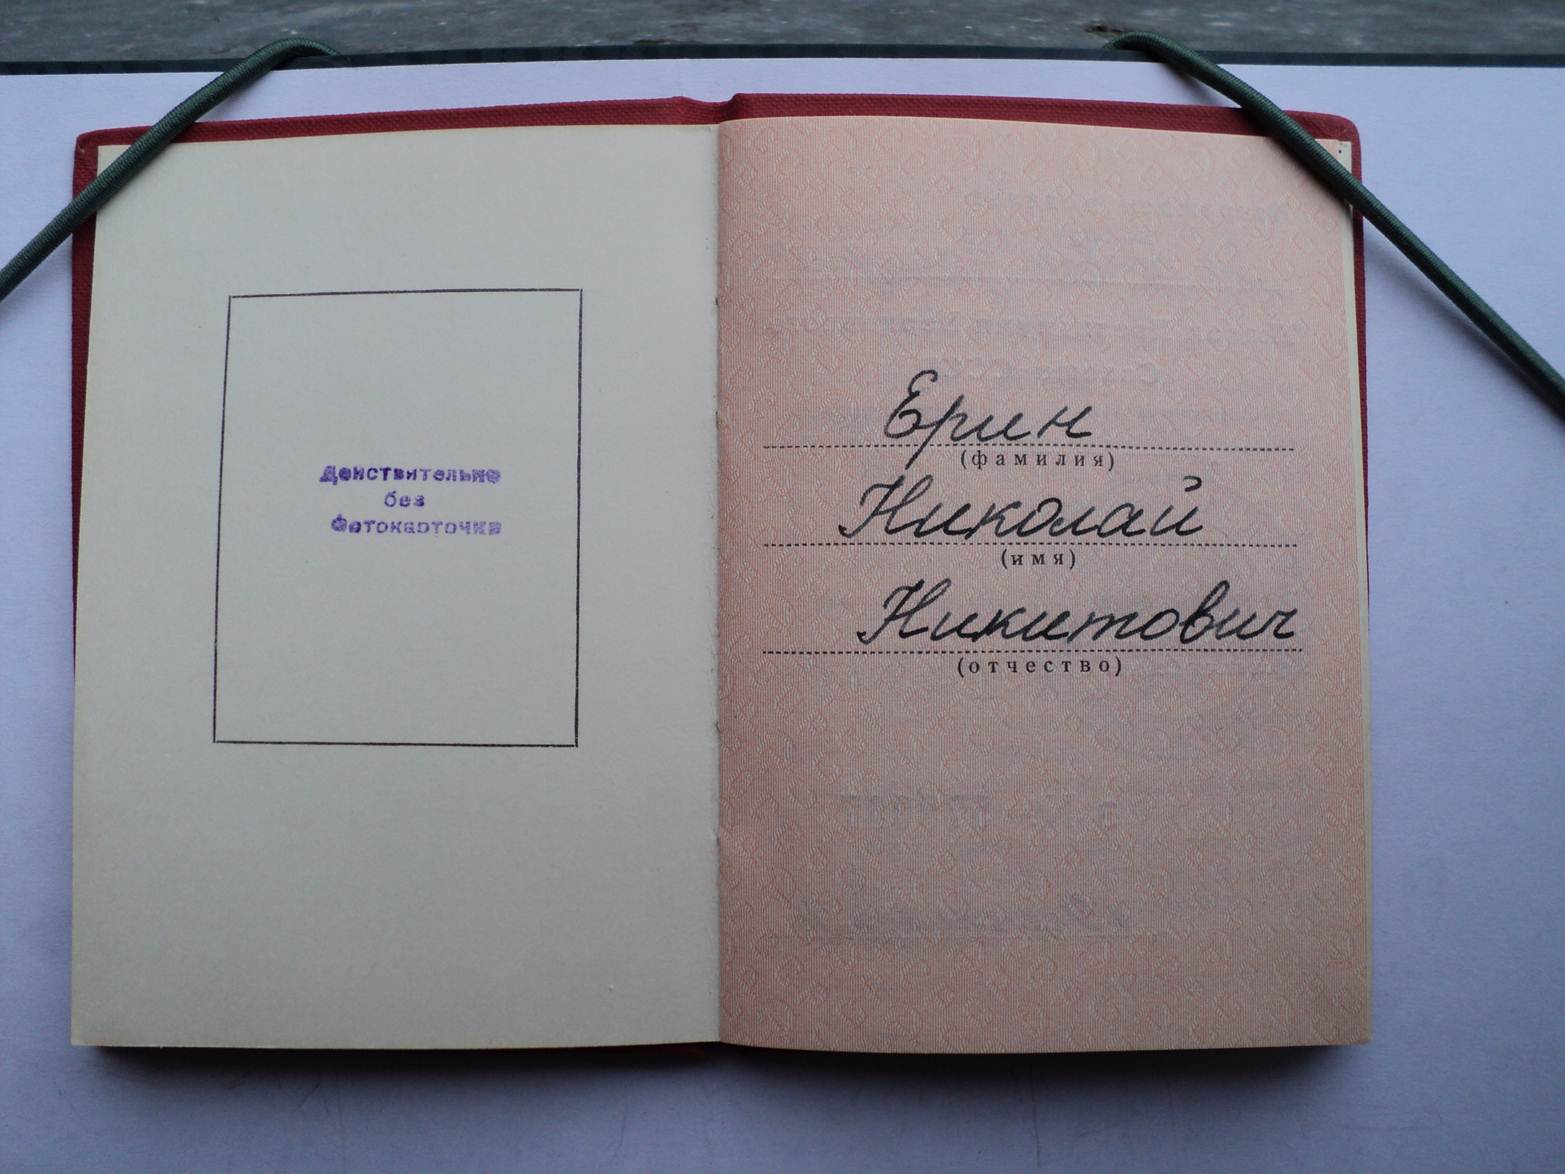 Действительно
без
фотокарточки
Ерин
(фамилия)
Николай
(имя)
Никитович
(отчество)